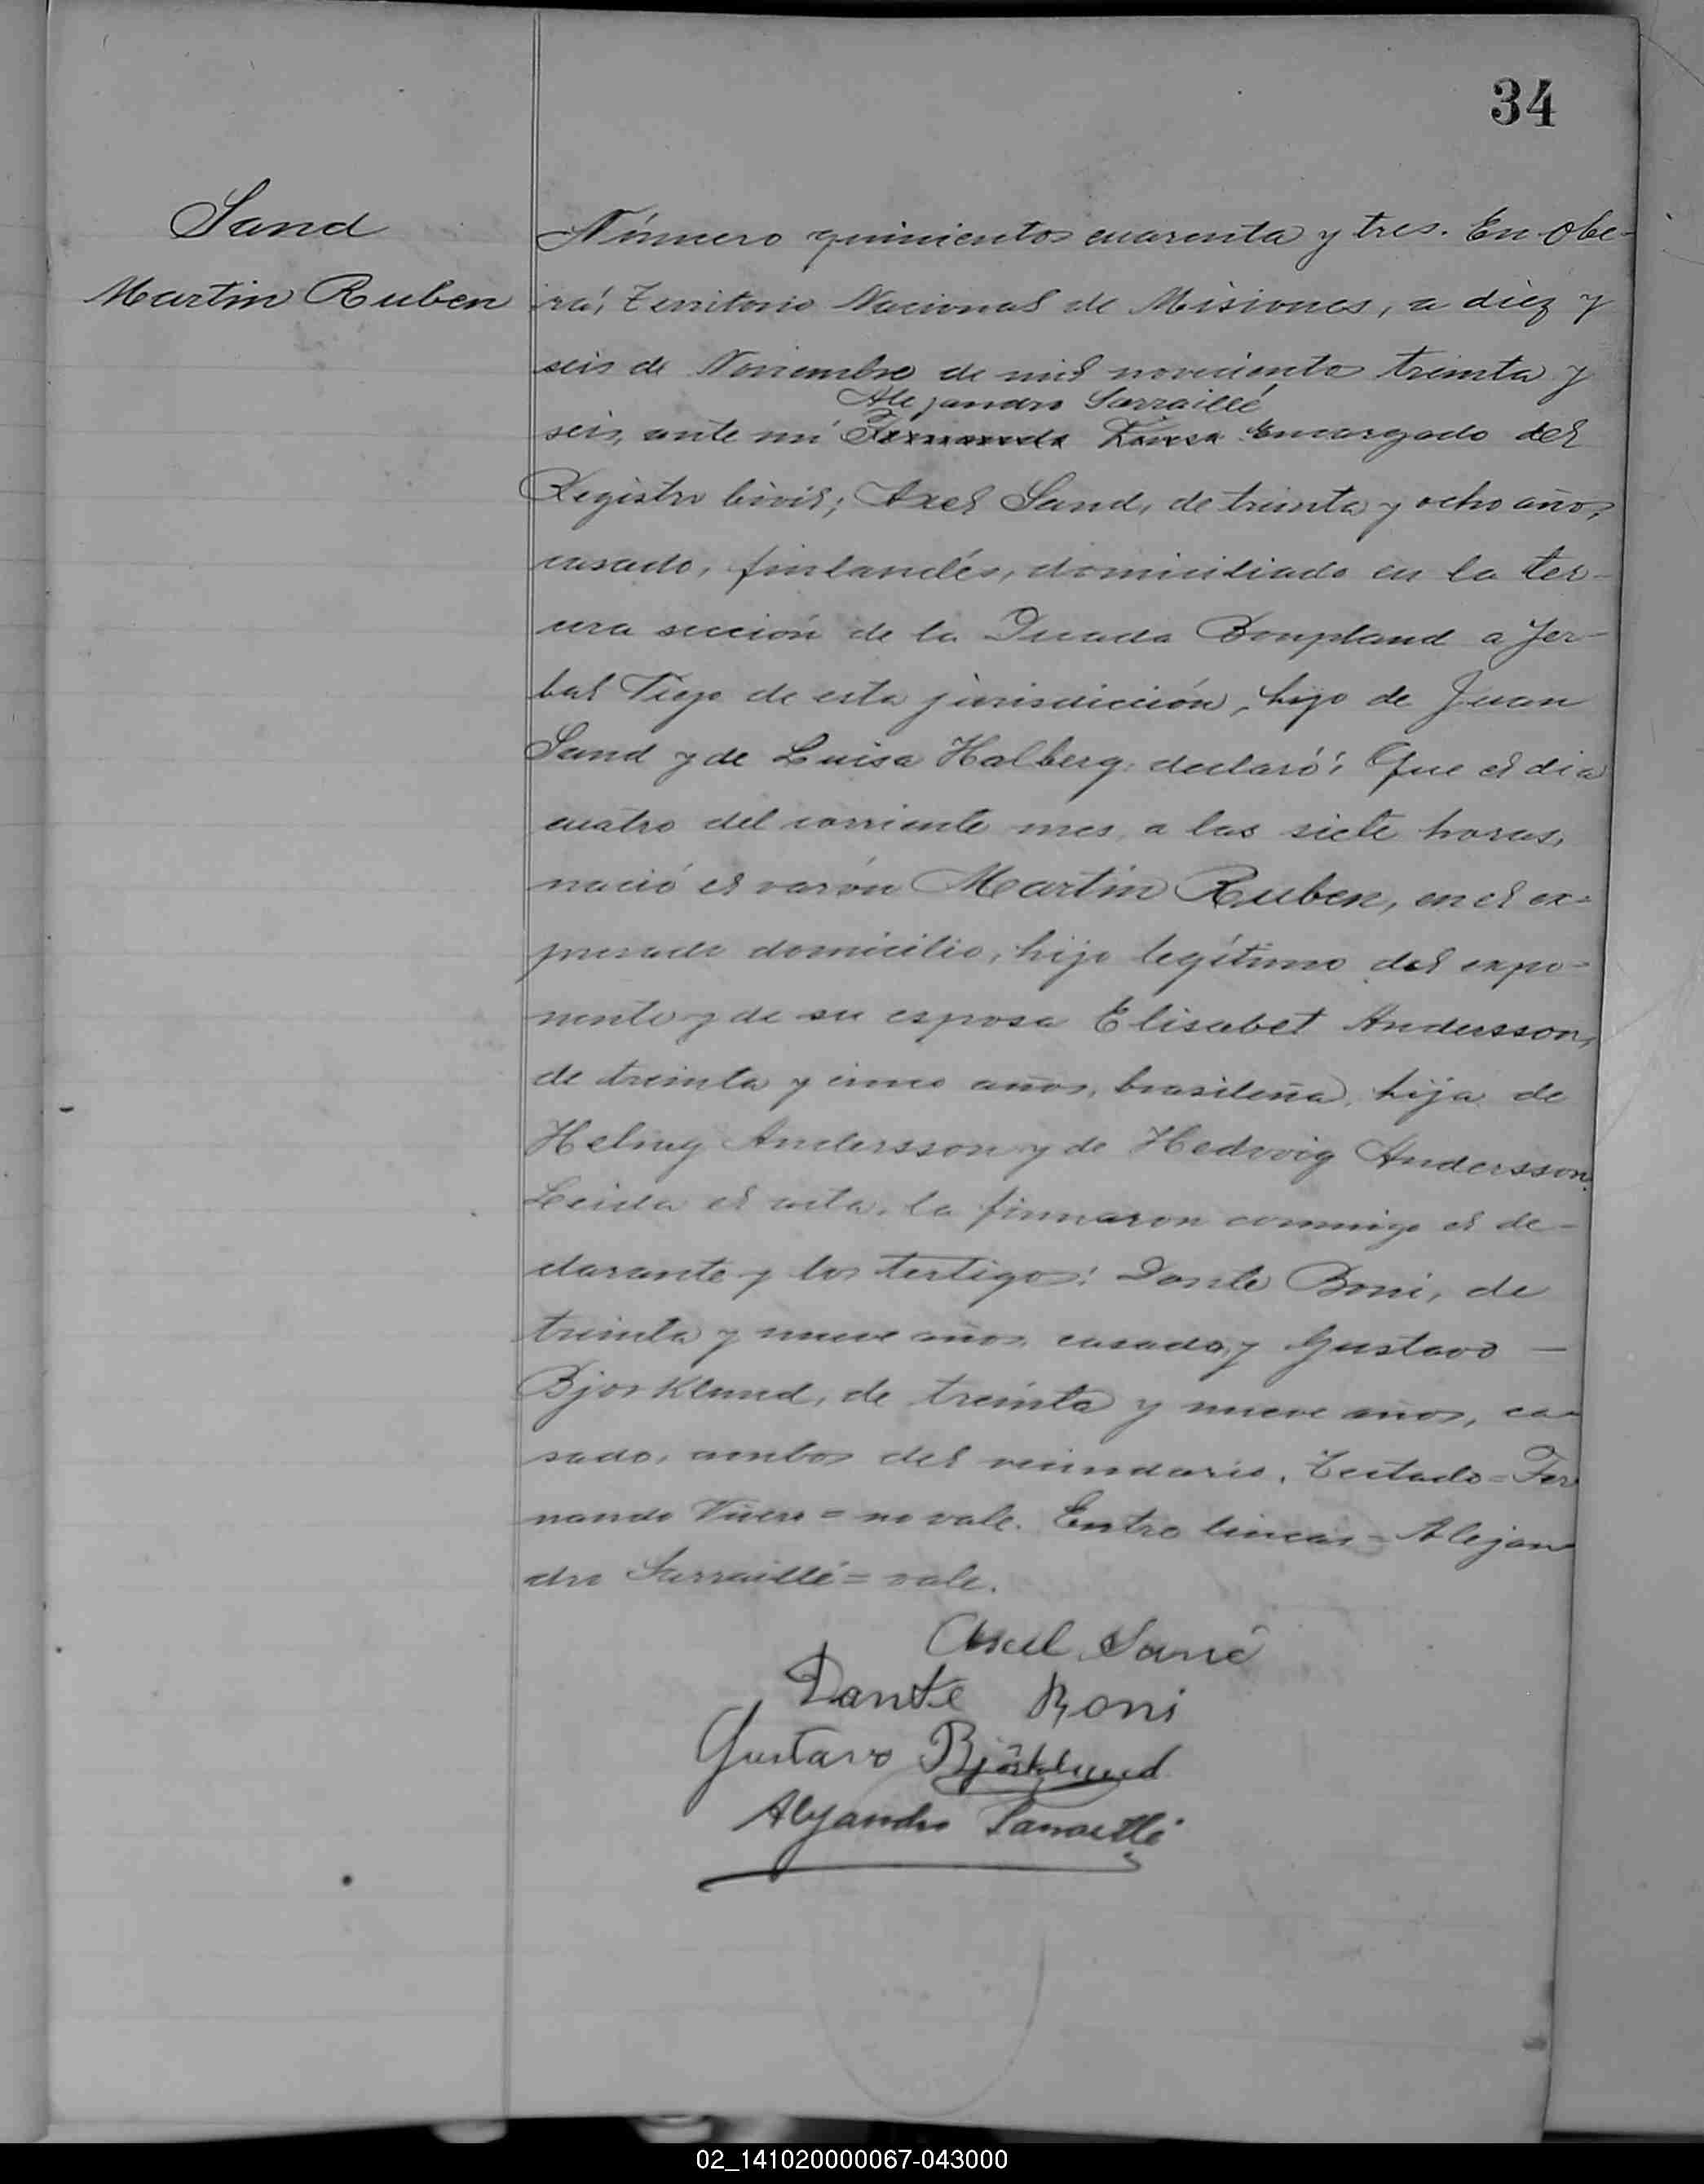 34
Sand
Martin Ruben
Número quinientos cuarenta y tres. En Obe-
rá, Territorio Nacional de Misiones, a diez y
seis de Noviembre de mil novecientos treinta y
Alejandro Sarraillé
seis, ante mí Fernando Encargado del
Registro Civil; Axel Sand, de treinta y ocho años,
casado, finlandés, domiciliado en la ter-
cera sección de la Picada Bonpland a Yer-
bal Viejo de esta jurisdicción, hijo de Juan
Sand y de Luisa Halberg declaró: Que el dia
cuatro del corriente mes, a las siete horas,
nació el varón Martin Ruben, en el ex-
presado domicilio, hijo legítimo del expo-
nente y de su esposa Elisabet Andersson,
de treinta y cinco años, brasileña, hija de
Helmy Andersson y de Hedvvig Andersson.
Leida el acta, la firmaron conmigo el de-
clarante y los testigos: Dante Boni, de
treinta y nueve años, casado, y Gustavo —
Bjorklund, de treinta y nueve años, ca-
sado, ambos del vecindario. Testado = Fer
nando = no vale. Entre lineas = Alejan
dro Sarraillé = vale.
Axel Sand
Dante Boni
Gustavo Björklund
Alejandro Sarraillé
02_141020000067-043000